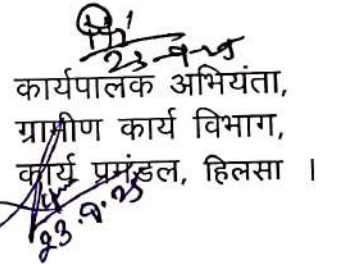 23-9-25
कार्यपालक अभियंता,
ग्रामीण कार्य विभाग,
कार्य प्रमंडल, हिलसा ।
23.9.25